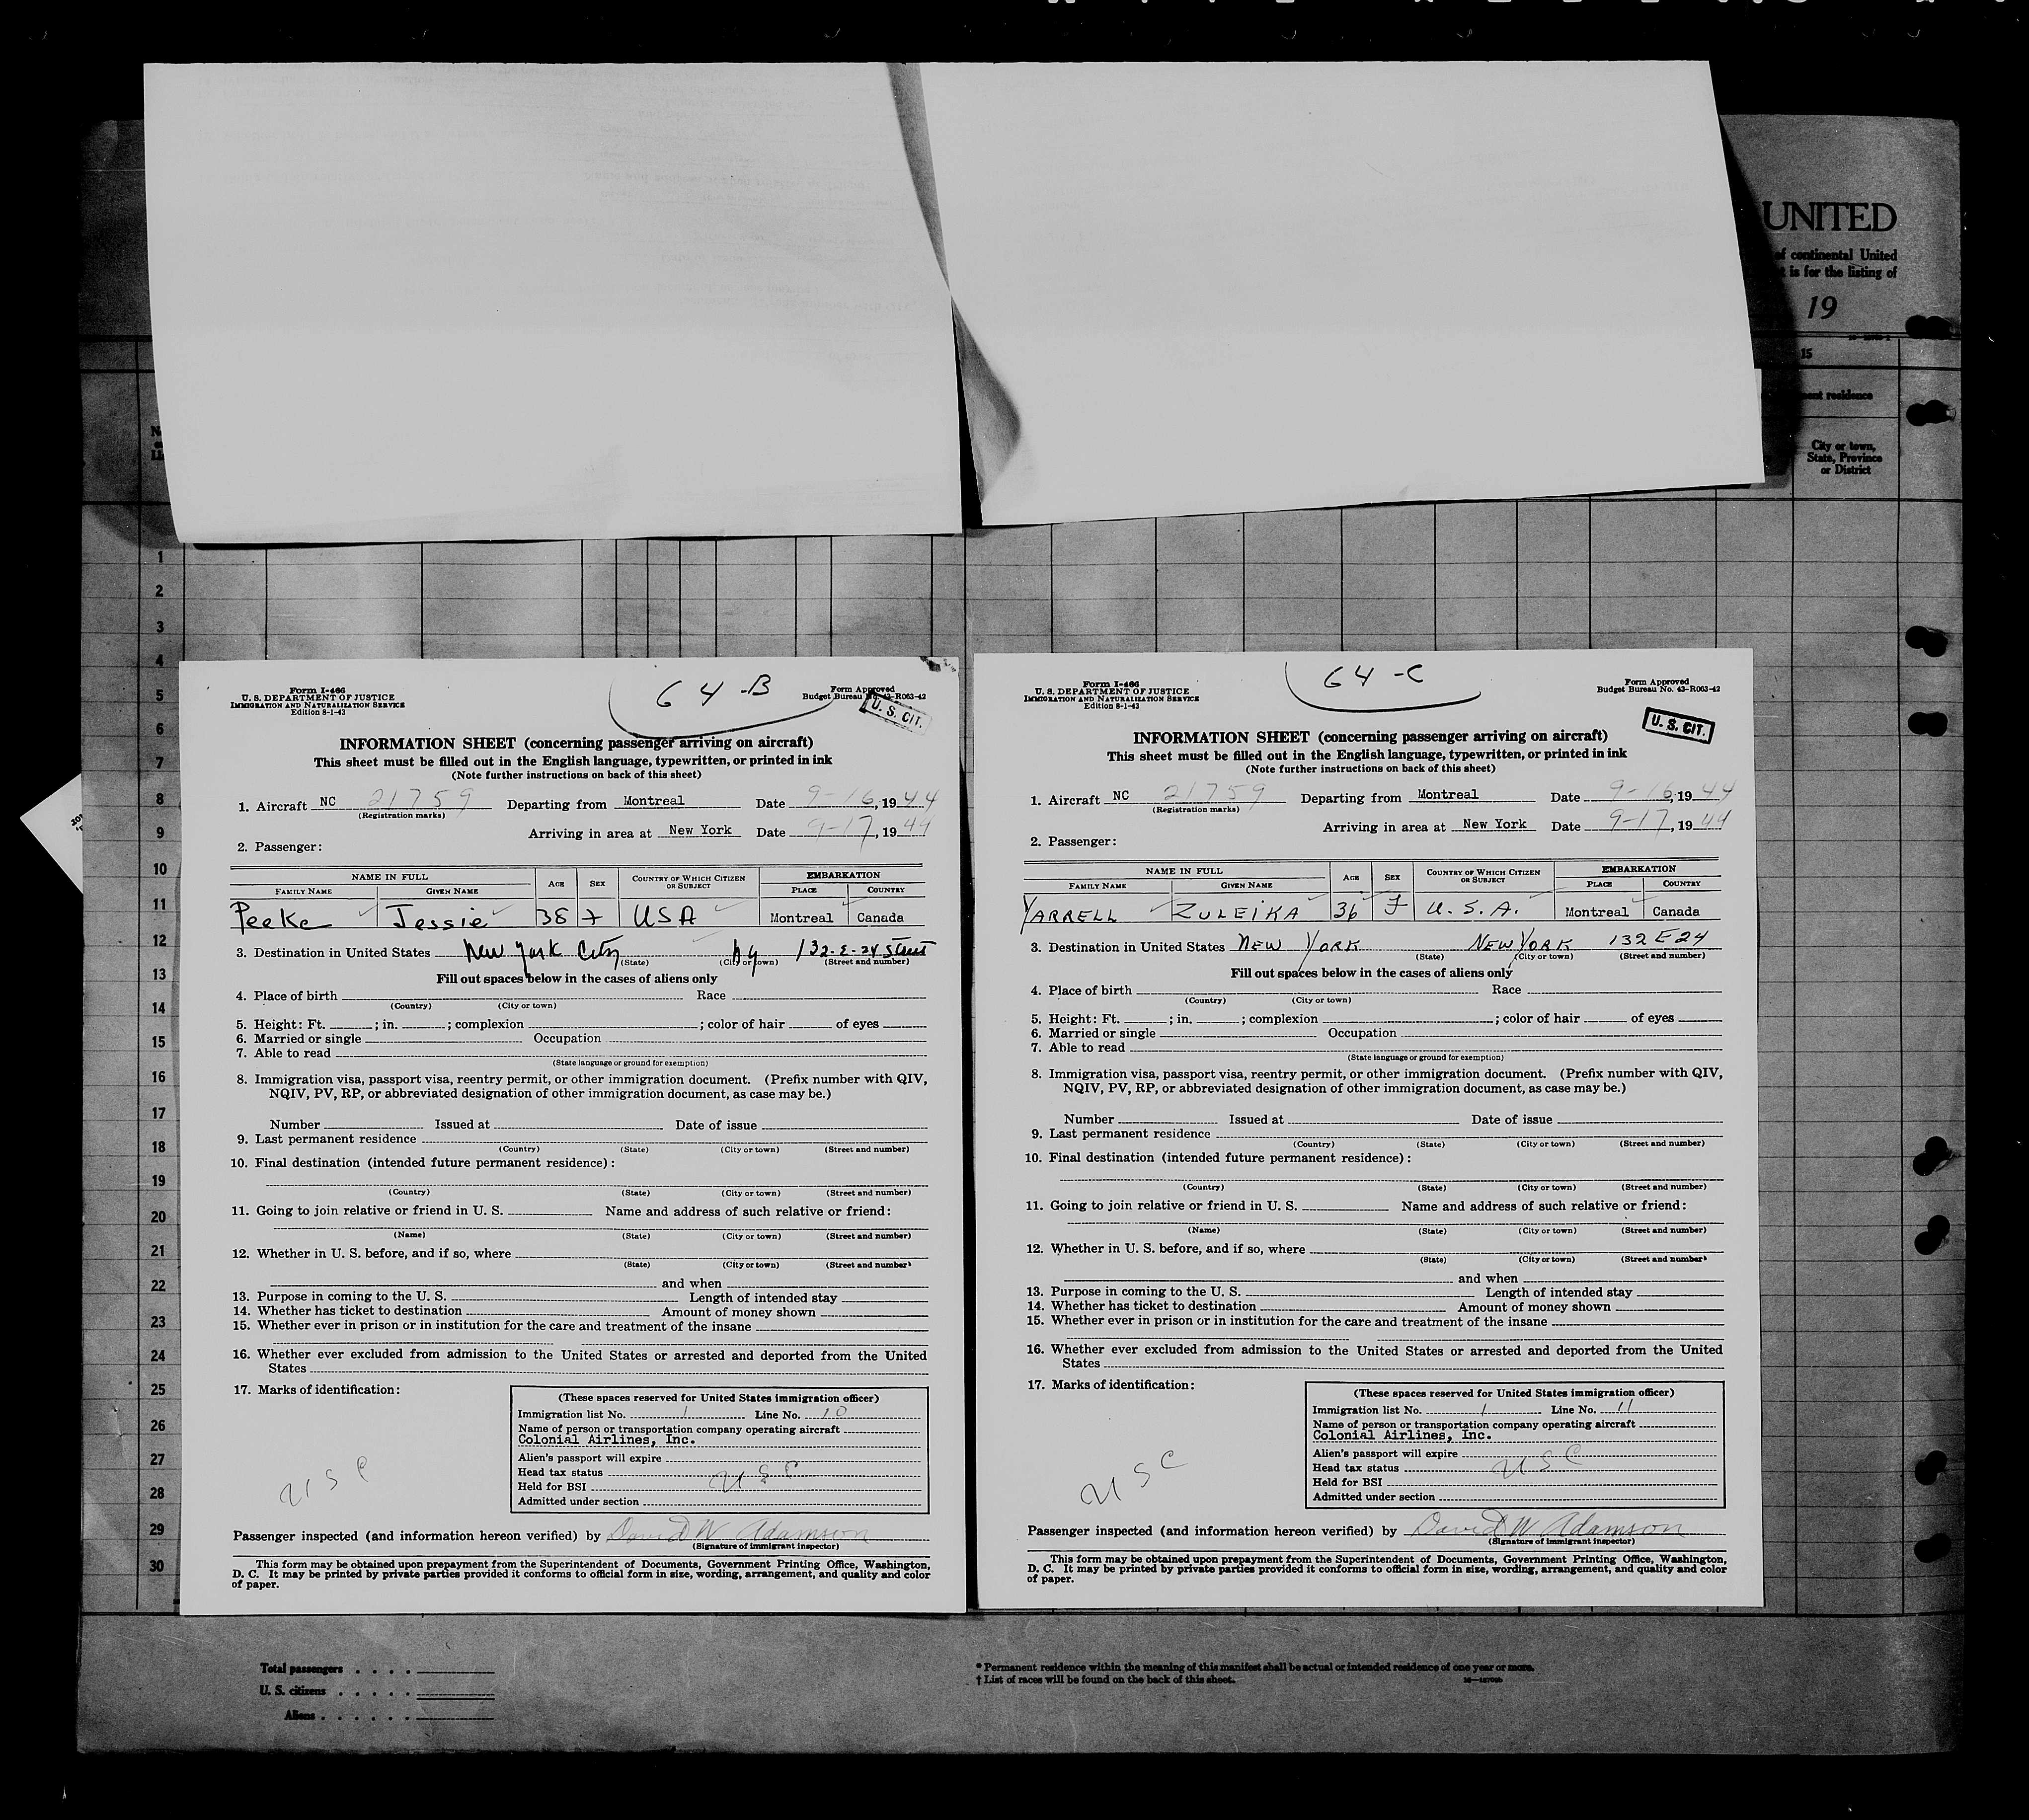 UNITED
of continental United
is for the listing of
19
15
residence
City or town,
State, Province
or District
1
2
3
4
5
6
7
8
9
10
11
12
13
14
15
16
17
18
19
20
21
22
23
24
25
26
27
28
29
30
Form I-466
U. S. DEPARTMENT OF JUSTICE
IMMIGRATION AND NATURALIZATION SERVICE
Edition 8-1-43
64-B
Form Approved
Budget Bureau No. 43-R063-42
U. S. CIT.
INFORMATION SHEET (concerning passenger arriving on aircraft)
This sheet must be filled out in the English language, typewritten, or printed in ink
(Note further instructions on back of this sheet)
1. Aircraft NC 21759 Departing from Montreal Date 9-16, 1944
(Registration marks)
Arriving in area at New York Date 9-17, 1944
2. Passenger:
NAME IN FULL AGE SEX COUNTRY OF WHICH CITIZEN OR SUBJECT EMBARKATION
FAMILY NAME GIVEN NAME PLACE COUNTRY
Peeke Jessie 38 F USA Montreal Canada
3. Destination in United States New York City NY 132-E-24 Street
(State) (City or town) (Street and number)
Fill out spaces below in the cases of aliens only
4. Place of birth Race
(Country) (City or town)
5. Height: Ft. ; in. ; complexion ; color of hair of eyes
6. Married or single Occupation
7. Able to read
(State language or ground for exemption)
8. Immigration visa, passport visa, reentry permit, or other immigration document. (Prefix number with QIV,
NQIV, PV, RP, or abbreviated designation of other immigration document, as case may be.)
Number Issued at Date of issue
9. Last permanent residence
(Country) (State) (City or town) (Street and number)
10. Final destination (intended future permanent residence):
(Country) (State) (City or town) (Street and number)
11. Going to join relative or friend in U. S. Name and address of such relative or friend:
(Name) (State) (City or town) (Street and number)
12. Whether in U. S. before, and if so, where
(State) (City or town) (Street and number)
and when
13. Purpose in coming to the U. S. Length of intended stay
14. Whether has ticket to destination Amount of money shown
15. Whether ever in prison or in institution for the care and treatment of the insane
16. Whether ever excluded from admission to the United States or arrested and deported from the United
States
17. Marks of identification:
(These spaces reserved for United States immigration officer)
Immigration list No. 1 Line No. 10
Name of person or transportation company operating aircraft
Colonial Airlines, Inc.
Alien's passport will expire
Head tax status USC
Held for BSI
Admitted under section
USC
Passenger inspected (and information hereon verified) by David W Adamson
(Signature of immigrant inspector)
This form may be obtained upon prepayment from the Superintendent of Documents, Government Printing Office, Washington,
D. C. It may be printed by private parties provided it conforms to official form in size, wording, arrangement, and quality and color
of paper.
Form I-466
U. S. DEPARTMENT OF JUSTICE
IMMIGRATION AND NATURALIZATION SERVICE
Edition 8-1-43
64-C
Form Approved
Budget Bureau No. 43-R063-42
U. S. CIT.
INFORMATION SHEET (concerning passenger arriving on aircraft)
This sheet must be filled out in the English language, typewritten, or printed in ink
(Note further instructions on back of this sheet)
1. Aircraft NC 21759 Departing from Montreal Date 9-16, 1944
(Registration marks)
Arriving in area at New York Date 9-17, 1944
2. Passenger:
NAME IN FULL AGE SEX COUNTRY OF WHICH CITIZEN OR SUBJECT EMBARKATION
FAMILY NAME GIVEN NAME PLACE COUNTRY
YARRELL ZULEIKA 36 F U.S.A. Montreal Canada
3. Destination in United States NEW YORK NEW YORK 132 E 24
(State) (City or town) (Street and number)
Fill out spaces below in the cases of aliens only
4. Place of birth Race
(Country) (City or town)
5. Height: Ft. ; in. ; complexion ; color of hair of eyes
6. Married or single Occupation
7. Able to read
(State language or ground for exemption)
8. Immigration visa, passport visa, reentry permit, or other immigration document. (Prefix number with QIV,
NQIV, PV, RP, or abbreviated designation of other immigration document, as case may be.)
Number Issued at Date of issue
9. Last permanent residence
(Country) (State) (City or town) (Street and number)
10. Final destination (intended future permanent residence):
(Country) (State) (City or town) (Street and number)
11. Going to join relative or friend in U. S. Name and address of such relative or friend:
(Name) (State) (City or town) (Street and number)
12. Whether in U. S. before, and if so, where
(State) (City or town) (Street and number)
and when
13. Purpose in coming to the U. S. Length of intended stay
14. Whether has ticket to destination Amount of money shown
15. Whether ever in prison or in institution for the care and treatment of the insane
16. Whether ever excluded from admission to the United States or arrested and deported from the United
States
17. Marks of identification:
(These spaces reserved for United States immigration officer)
Immigration list No. 1 Line No. 11
Name of person or transportation company operating aircraft
Colonial Airlines, Inc.
Alien's passport will expire
Head tax status USC
Held for BSI
Admitted under section
USC
Passenger inspected (and information hereon verified) by David W Adamson
(Signature of immigrant inspector)
This form may be obtained upon prepayment from the Superintendent of Documents, Government Printing Office, Washington,
D. C. It may be printed by private parties provided it conforms to official form in size, wording, arrangement, and quality and color
of paper.
Total passengers
U. S. citizens
Aliens
* Permanent residence within the meaning of this manifest shall be actual or intended residence of one year or more.
† List of races will be found on the back of this sheet.